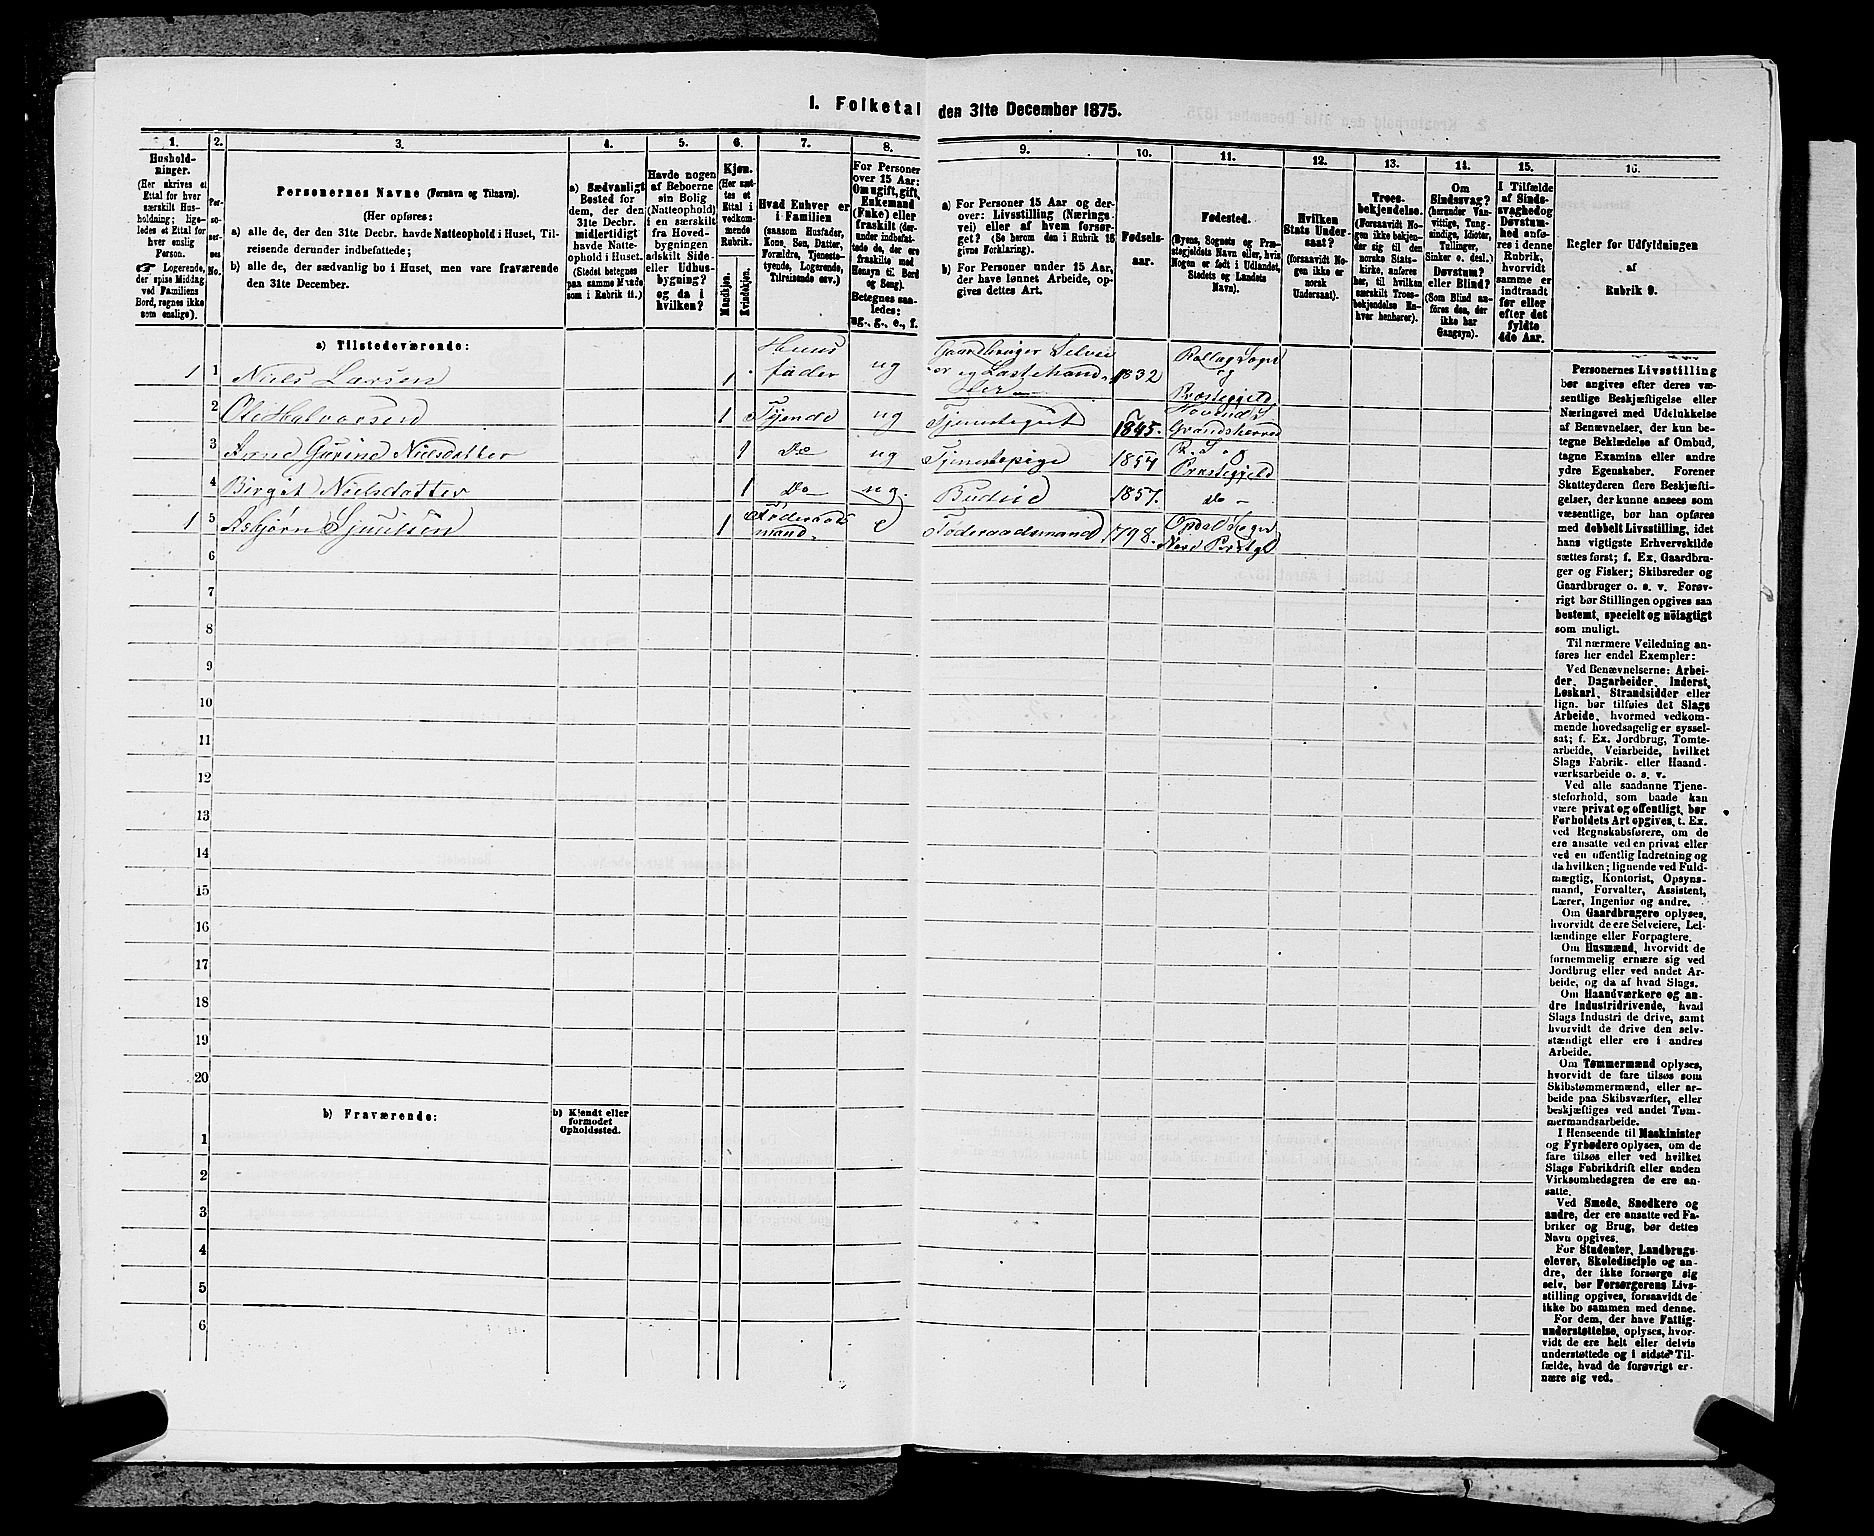 1. Folketal den 31te December 1875.
1. 2. 3. 4. 5. 6. 7. 8. 9. 10. 11. 12. 13. 14. 15. 16.
Hushold-
ninger.
(Her skrives et
Ettal for hver
særskilt Hus-
holdning; lige-
ledes et Ettal for
hver enslig
Person.
☞ Logerende,
der spise Middag
ved Familiens
Bord, regnes ikke
som enslige).
Per-
so-
ner-
nes
No.
Personernes Navne (Fornavn og Tilnavn).
(Her opføres:
a) alle de, der den 31te Decbr. havde Natteophold i Huset, Til-
reisende derunder indbefattede;
b) alle de, der sædvanlig bo i Huset, men vare fraværende
den 31te December.
a) Sædvanligt
Bosted for
dem, der den
31te Decbr.
midlertidigt
havde Natte-
ophold i Huset.
(Stedet betegnes
paa samme Maade
som i Rubrik 11.)
Havde nogen
af Beboerne
sin Bolig
(Natteophold)
i en særskilt
fra Hoved-
bygningen
adskilt Side-
eller Udhus-
bygning?
og da i
hvilken?
Kjøn.
(Her sæt-
tes et
Ettal i
vedkom-
mende
Rubrik.
Mandkjøn.
Kvindekjøn.
Hvad Enhver er
i Familien
(saasom Husfader,
Kone, Søn, Datter,
Forældre, Tjeneste-
tyende, Logerende,
Tilreisende osv.)
For Personer
over 15 Aar:
Om ugift, gift,
Enkemand
(Enke) eller
fraskilt (der-
under indbefat-
tede de, der ere
fraskilte med
Hensyn til Bord
og Seng).
Betegnes saa-
ledes:
ug., g., e., f.
a) For Personer 15 Aar og der-
over: Livsstilling (Nærings-
vei) eller af hvem forsør-
get? (Se herom den i Rubrik 16
givne Forklaring).
b) For Personer under 15 Aar,
der have lønnet Arbeide, op-
gives dettes Art.
Fødsels-
aar.
Fødested.
(Byens, Sognets og Præ-
stegjeldets Navn eller, hvis
Nogen er født i Udlandet,
Stedets og Landets
Navn).
Hvilken
Stats Under-
saat?
(forsaavidt No-
gen ikke er
norsk
Undersaat).
Troes-
bekjendelse.
(Forsaavidt No-
gen ikke bekjen-
der sig til den
norske Stats-
kirke, anføres
her, til hvilken
særskilt Troes-
bekjendelse En-
hver henhører).
Om
Sindssvag?
(herunder Van-
vittige, Tung-
sindige, Idioter,
Tullinger,
Sinker o. desl.)
Døvstum?
eller Blind?
(Som Blind an-
føres den, der
ikke har
Gangsyn).
I Tilfælde
af Sinds-
svaghed og
Døvstum-
hed anfø-
res i denne
Rubrik,
hvorvidt
samme er
indtraadt
før eller
efter det
fyldte
4de Aar.
Regler for Udfyldningen
af
Rubrik 9.
a) Tilstedeværende:
1 1 Niels Larsen 1 Huusfader ug Gaardbruger Selvei er og Lastehandler 1832 Rollag Sogn og Præstegjeld
2 Ole Halvorsen 1 Tjende ug Tjenestegut 1845. Hovind S Grandsherred
3 Anne Gurine Nielsdatter 1 Do ug Tjenestepige 1854 R. S. og Præstegjeld
4 Birgit Nielsdatter 1 Do ug. Budeie 1857. Do -
1 5 Asbjørn Sjulsen 1 Føderaads mand. e Føderaadsmand 1798. Opdal Sogn Nore Præstgd
6
7
8
9
10
11
12
13
14
15
16
17
18
19
20
b) Fraværende:
b) Kjendt eller
formodet
Opholdssted.
1
2
3
4
5
6
Personernes Livsstilling
bør angives efter deres væ-
sentlige Beskjæftigelse eller
Næringsvei med Udelukkelse
af Benævnelser, der kun be-
tegne Beklædelse af Ombud,
tagne Examina eller andre
ydre Egenskaber. Forener
Skatteyderen flere Beskjæfti-
gelser, der kunne ansees som
væsentlige, bør han opføres
med dobbelt Livsstilling, idet
hans vigtigste Erhvervskilde
sættes først; f. Ex. Gaardbru-
ger og Fisker; Skibsreder og
Gaardbruger o. s. v. Forøv-
rigt bør Stillingen opgives saa
bestemt, specielt og nöiagtigt
som muligt.
Til nærmere Veiledning an-
føres her endel Exempler:
Ved Benævnelserne: Arbei-
der, Dagarbeider, Inderst,
Løskarl, Strandsidder eller
lign. bør tilføies det Slags
Arbeide, hvormed vedkom-
mende hovedsagelig er syssel-
sat; f. Ex. Jordbrug, Tomte-
arbeide, Veiarbeide, hvilket
Slags Fabrik- eller Haand-
værksarbeide o. s. v.
Ved alle saadanne Tjene-
steforhold, som baade kan
være privat og offentligt, bør
Forholdets Art opgives, t. Ex.
ved Regnskabsførere, om de
ere ansatte ved en privat eller
ved en offentlig Indretning og
da hvilken; lignende ved Fuld-
mægtig, Kontorist, Opsyns-
mand, Forvalter, Assistent,
Lærer, Ingeniør og andre.
Om Gaardbrugere oplyses,
hvorvidt de ere Selveiere, Lei-
lændinge eller Forpagtere.
Om Husmænd, hvorvidt de
fornemmelig ernære sig ved
Jordbrug eller ved andet Ar-
beide, og da af hvad Slags.
Om Haandværkere og an-
dre Industridrivende, hvad
Slags Industri de drive, samt
hvorvidt de drive den selv-
stændigt eller ere i andres
Arbeide.
Om Tømmermænd oplyses,
hvorvidt de fare tilsøs som
Skibstømmermænd, eller ar-
beide paa Skibsværfter, eller
beskjæftiges ved andet Tøm-
mermandsarbeide.
I Henseende til Maskinister
og Fyrbødere oplyses, om de
fare tilsøs eller ved hvilket
Slags Fabrikdrift eller anden
Virksomhedsgren de ere an-
satte.
Ved Smede, Snedkere og
andre, der ere ansatte ved Fa-
briker og Brug, bør dettes
Navn opgives.
For Studenter, Landbrugs-
elever, Skoledisciple og an-
dre, der ikke forsørge sig
selv, bør Forsørgerens Livs-
stilling opgives, forsaavidt de
ikke bo sammen med denne.
For dem, der have Fattig-
understøttelse, oplyses, hvor-
vidt de ere helt eller delvis
understøttede og i sidste Til-
fælde, hvad de forøvrigt er-
nære sig ved.